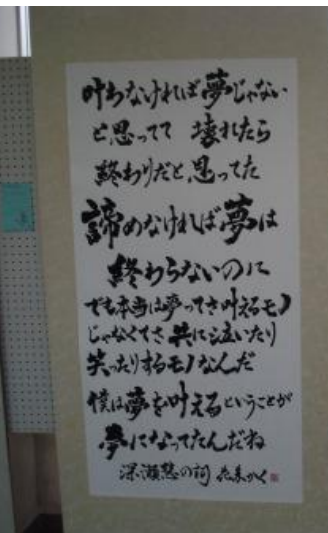 叶わなければ夢じゃない
と思ってて 壊れたら
終わりだと思ってた
諦めなければ夢は
終わらないのに
でも本当は夢ってさ叶えるモノ
じゃなくてさ 共に泣いたり
笑ったりするモノなんだ
僕は夢を叶えるということが
夢になってたんだね
深瀬慧の詞 かく